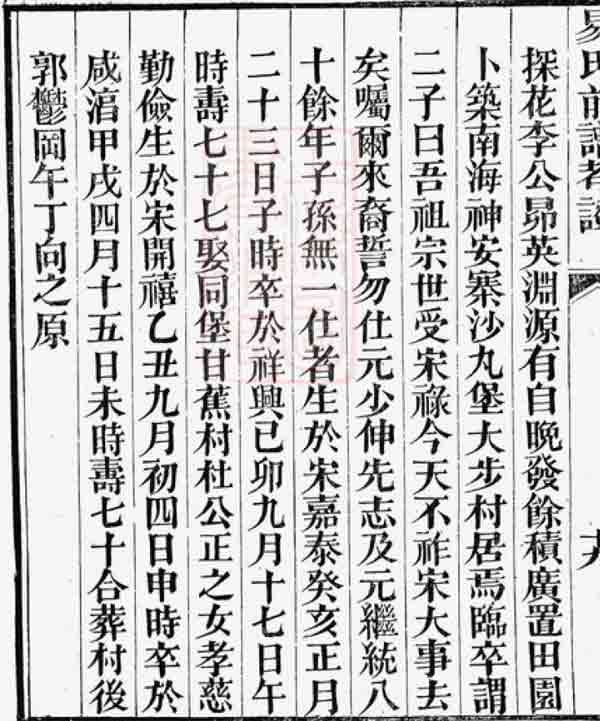 易氏前譜考證
探花李公昴英淵源有自晚發餘積廣置田園
卜築南海神安寨沙丸堡大步村居焉臨卒謂
二子曰吾祖宗世受宋祿今天不祚宋大事去
矣囑爾來裔誓勿仕元少伸先志及元繼統八
十餘年子孫無一仕者生於宋嘉泰癸亥正月
二十三日子時卒於祥興己卯九月十七日午
時壽七十七娶同堡甘蕉村杜公正之女孝慈
勤儉生於宋開禧乙丑九月初四日申時卒於
咸淯甲戌四月十五日未時壽七十合葬村後
郭鬱岡午丁向之原